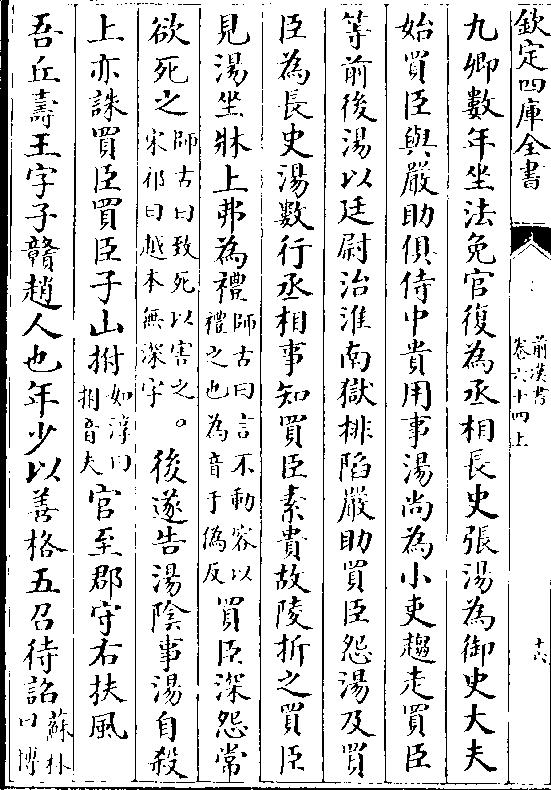 欽定四庫全書
前漢書
卷六十四上
十六
九卿數年坐法免官復為丞相長史張湯為御史大夫
始買臣與嚴助俱侍中貴用事湯尚為小吏趨走買臣
等前後湯以廷尉治淮南獄排陷嚴助買臣怨湯及買
臣為長史湯數行丞相事知買臣素貴故陵折之買臣
見湯坐牀上弗為禮師古曰言不動容以禮之也為音于偽反買臣深怨常
欲死之師古曰致死以害之。宋祁曰越本無深字後遂告湯陰事湯自殺
上亦誅買臣買臣子山拊如淳曰拊音夫官至郡守右扶風
吾丘壽王字子贛趙人也年少以善格五召待詔蘇林曰博